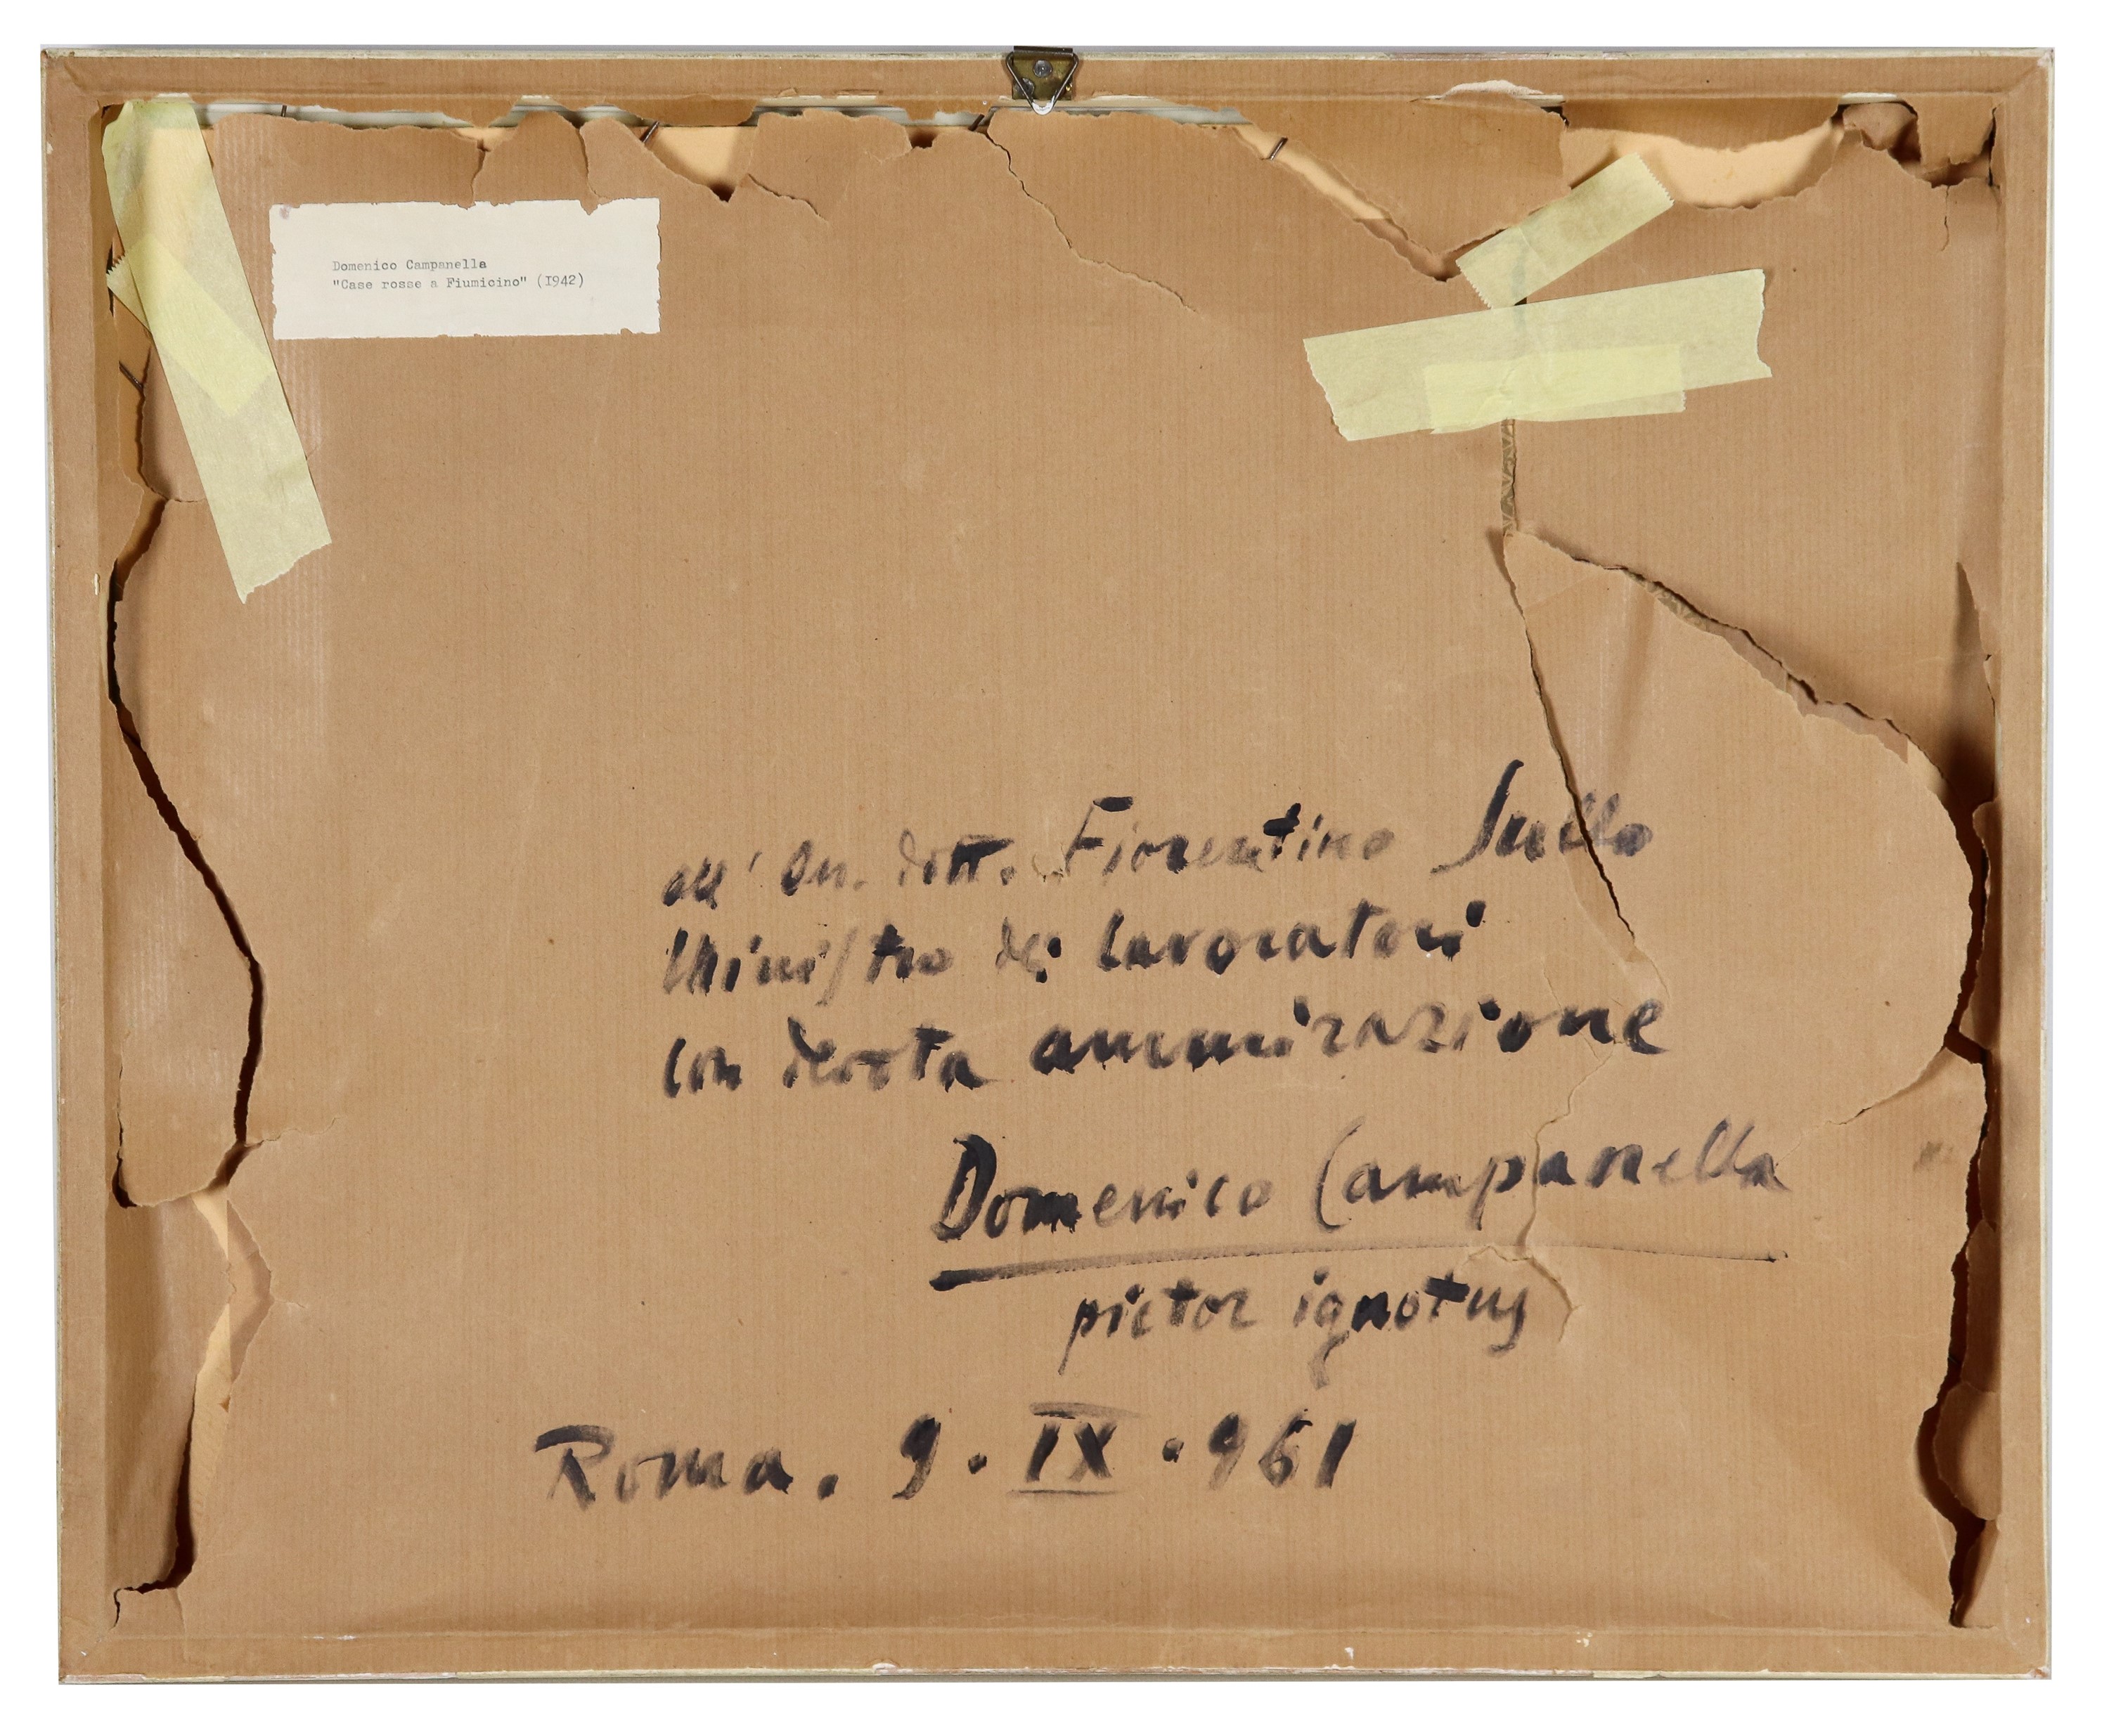 Domenico Campanella
"Case rosse a Fiumicino" (I942)
all' On. dott. Fiorentino Sullo
Ministro dei lavoratori
con devota ammirazione
Domenico Campanella
pictor ignotus
Roma. 9. IX. 961